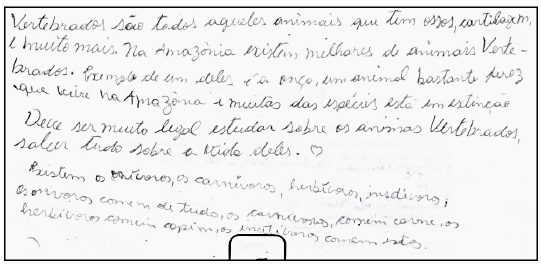 Vertebrados são todos aqueles animais que tem ossos, cartilagem,
e muito mais. Na Amazônia existem milhares de animais Verte-
brados. Exemplo de um deles é a onça, um animal bastante feroz
que vive na Amazônia e muitas das espécies está em estinção
Deve ser muito legal estudar sobre os animas Vertebrados,
saber tudo sobre a vida deles. ♡
Existem os onívoros, os carnívoros, herbívoros, insetívoros,
os onívoros comem de tudo, os carnívoros, comem carne, os
herbívoros comem capim, os insetívoros comem